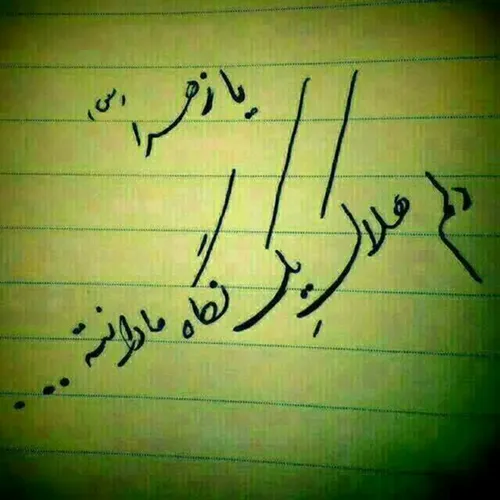 یا زهرا (س)
دلم هلاکِ یک نگاه مادرانته...